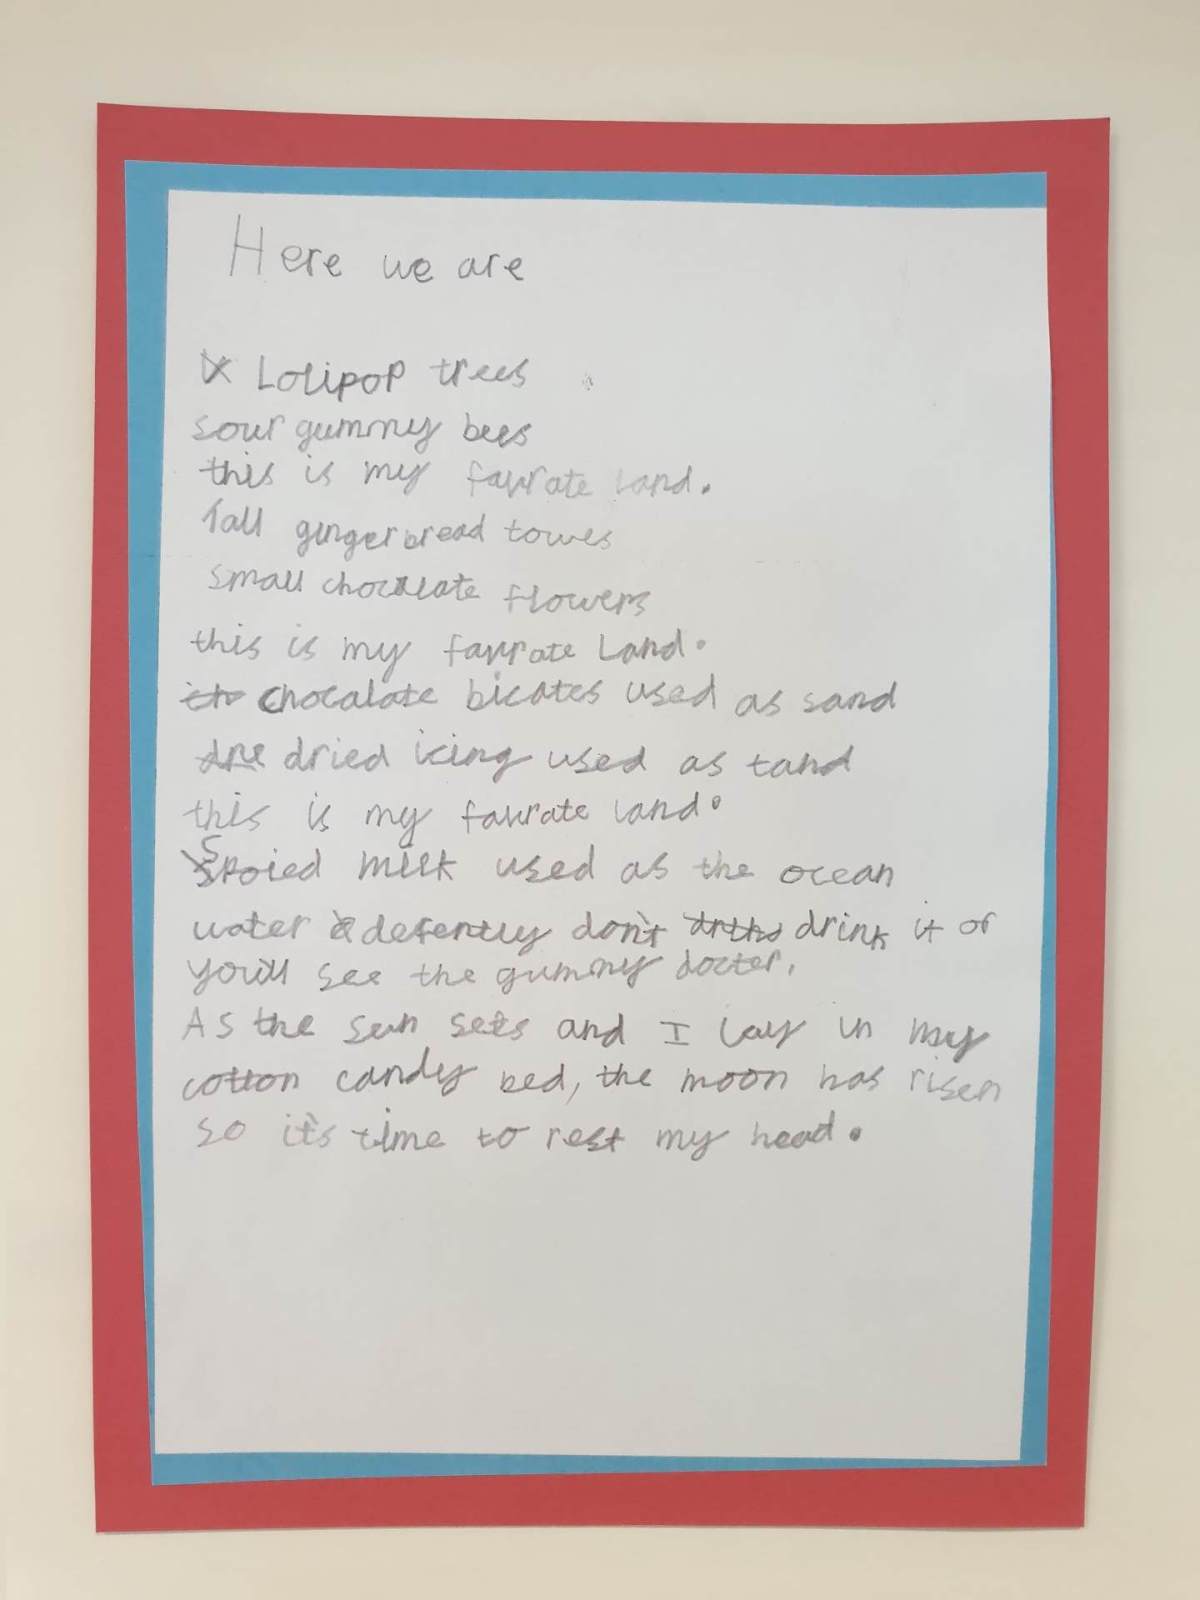 Here we are
Lolipop trees
sour gummy bees
this is my favrate land.
Tall gingerbread towes
small chocalate flowers
this is my favrate Land.
chocalate bicates used as sand
dried icing used as tand
this is my favrate land.
Spoied milk used as the ocean
water defently don't drink it or
you'll see the gummy docter.
As the sun sets and I lay in my
cotton candy bed, the moon has risen
so it's time to rest my head.